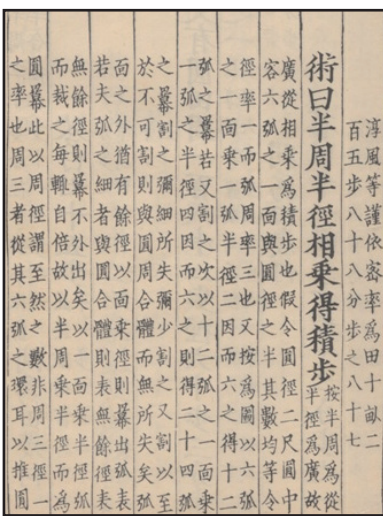 淳風等謹依密率爲田十畝二
百五步八十八分步之八十七
術曰半周半徑相乘得積步
按半周爲從
半徑爲廣故
廣從相乘爲積步也假令圓徑二尺圓中
容六弧之一面與圓徑之半其數均等令
徑率一而弧周率三也又按爲圖以六弧
之一面乘一弧半徑二因而六之得十二
弧之羃若又割之次以十二弧之一面乘
一弧之半徑四因而六之則得二十四弧
之羃割之彌細所失彌少割之又割以至
於不可割則與圓周合體而無所失矣弧
面之外猶有餘徑以面乘徑則羃出弧表
若夫弧之細者與圓合體則表無餘徑表
無餘徑則羃不外出矣以一面乘半徑弧
而裁之每輒自倍故以半周乘半徑而爲
圓羃此以周徑謂至然之數非周三徑一
之率也周三者從其六弧之環耳以推圓